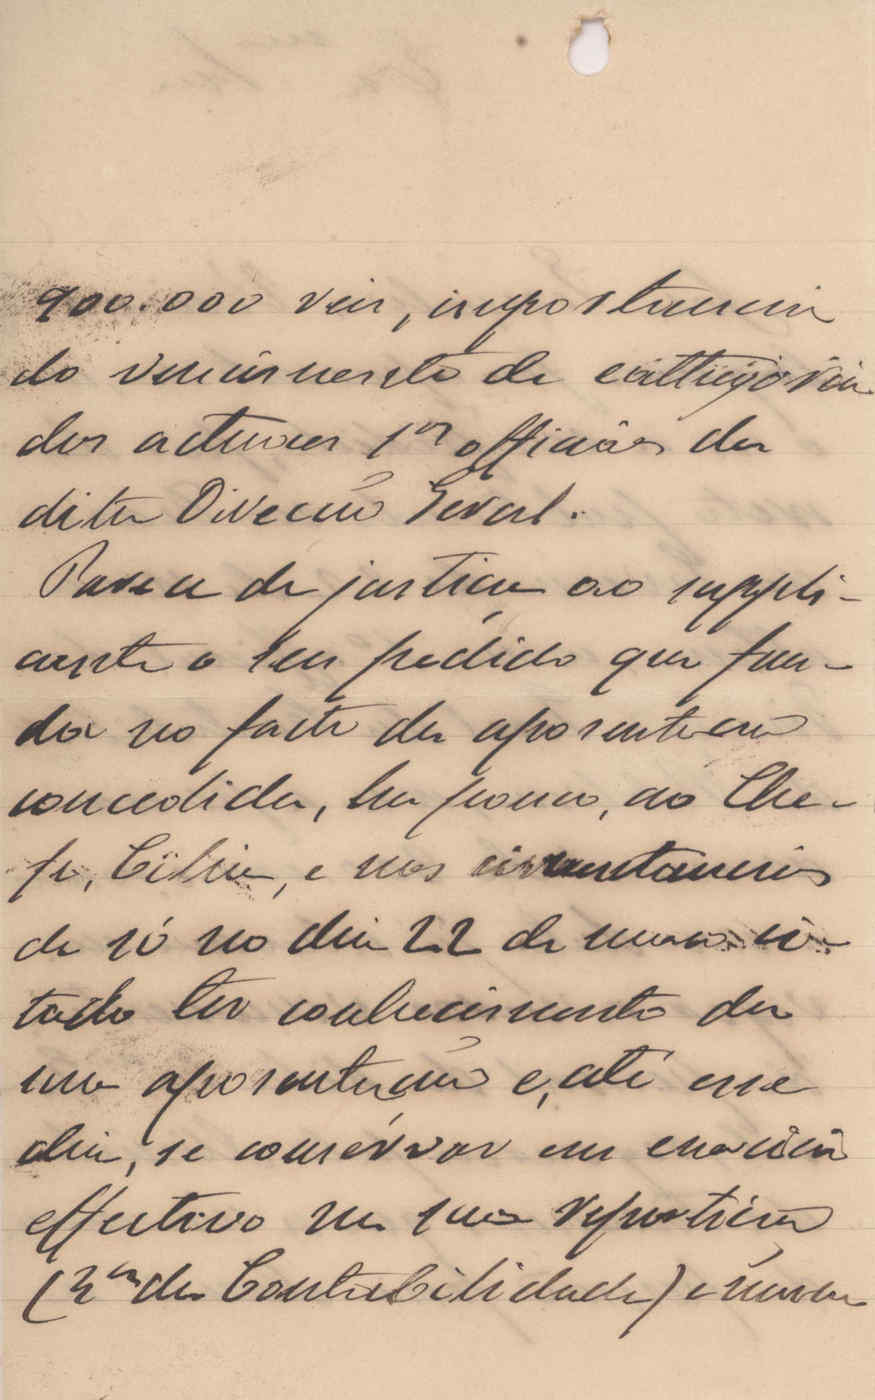 900.000 reis, importancia
do vencimento de cathegoria
dos actuaes 1os officiáes da
dita Direcção Geral.
Parece de justiça ao suppli-
cante o seu pedido que fun-
da no facto da aposentação
concedida, ha pouco, ao Che-
fe, Cilia, e nas circumstancias
de só no dia 22 de março ci-
tado ter conhecimento da
sua aposentação e, até esse
dia, se conservar em exercicio
effectivo na sua repartição
(3a da Contabilidade) e